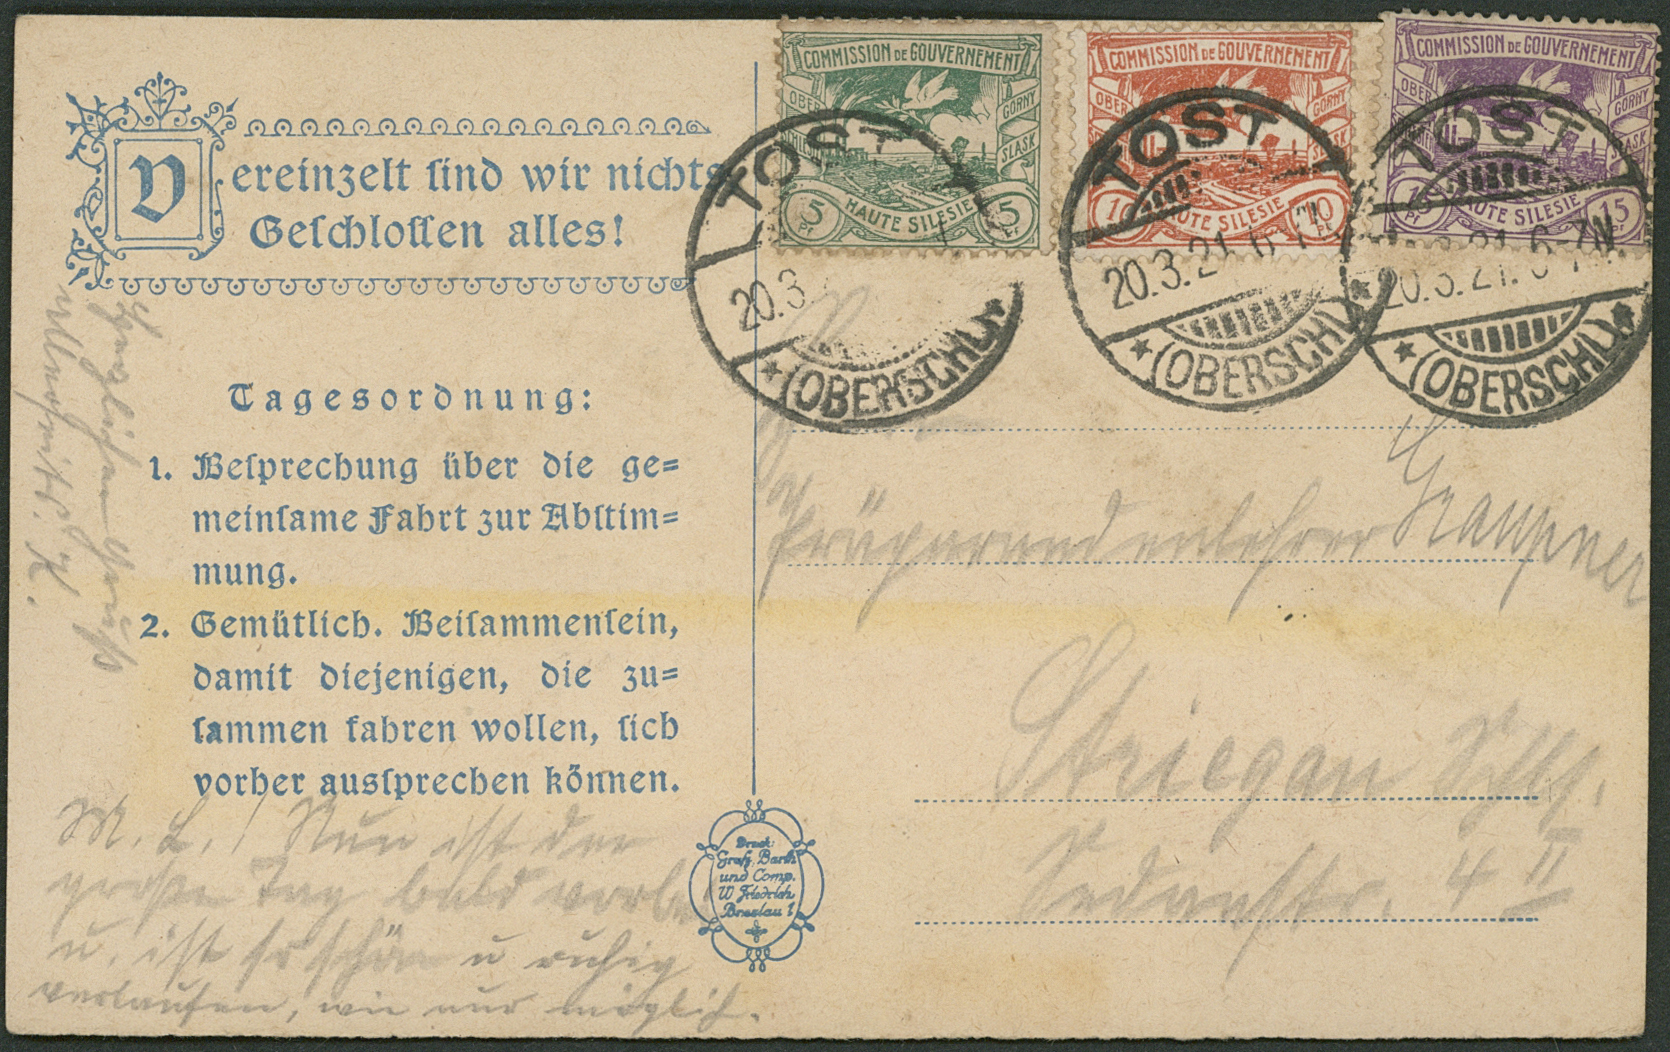 Vereinzelt sind wir nichts
Geschlossen alles!
Tagesordnung:
1. Besprechung über die ge=
meinsame Fahrt zur Abstim=
mung.
2. Gemütlich. Beisammensein,
damit diejenigen, die zu=
sammen fahren wollen, sich
vorher aussprechen können.
M. L.! Nun ist der
große Tag bald vorbei
u. ist so schön u ruhig
verlaufen, wie nur möglich.
Herzlichen Gruß
Druck:
Graß, Barth
und Comp.
W Friedrich
Breslau 1
COMMISSION DE GOUVERNEMENT
OBER
GORNY
SLASK
5 Pf
HAUTE SILESIE
5 Pf
COMMISSION DE GOUVERNEMENT
OBER
GORNY
SLASK
10
HAUTE SILESIE
10 Pf
COMMISSION DE GOUVERNEMENT
OBER
GORNY
SLASK
15 Pf
HAUTE SILESIE
15 Pf
TOST
20.3
(OBERSCHL.)
TOST
20.3.21. 6-7N
(OBERSCHL.)
TOST
20.3.21. 6-7N
(OBERSCHL.)
Präparandenlehrer
Striegau Schls.
Sedanstr. 4 II